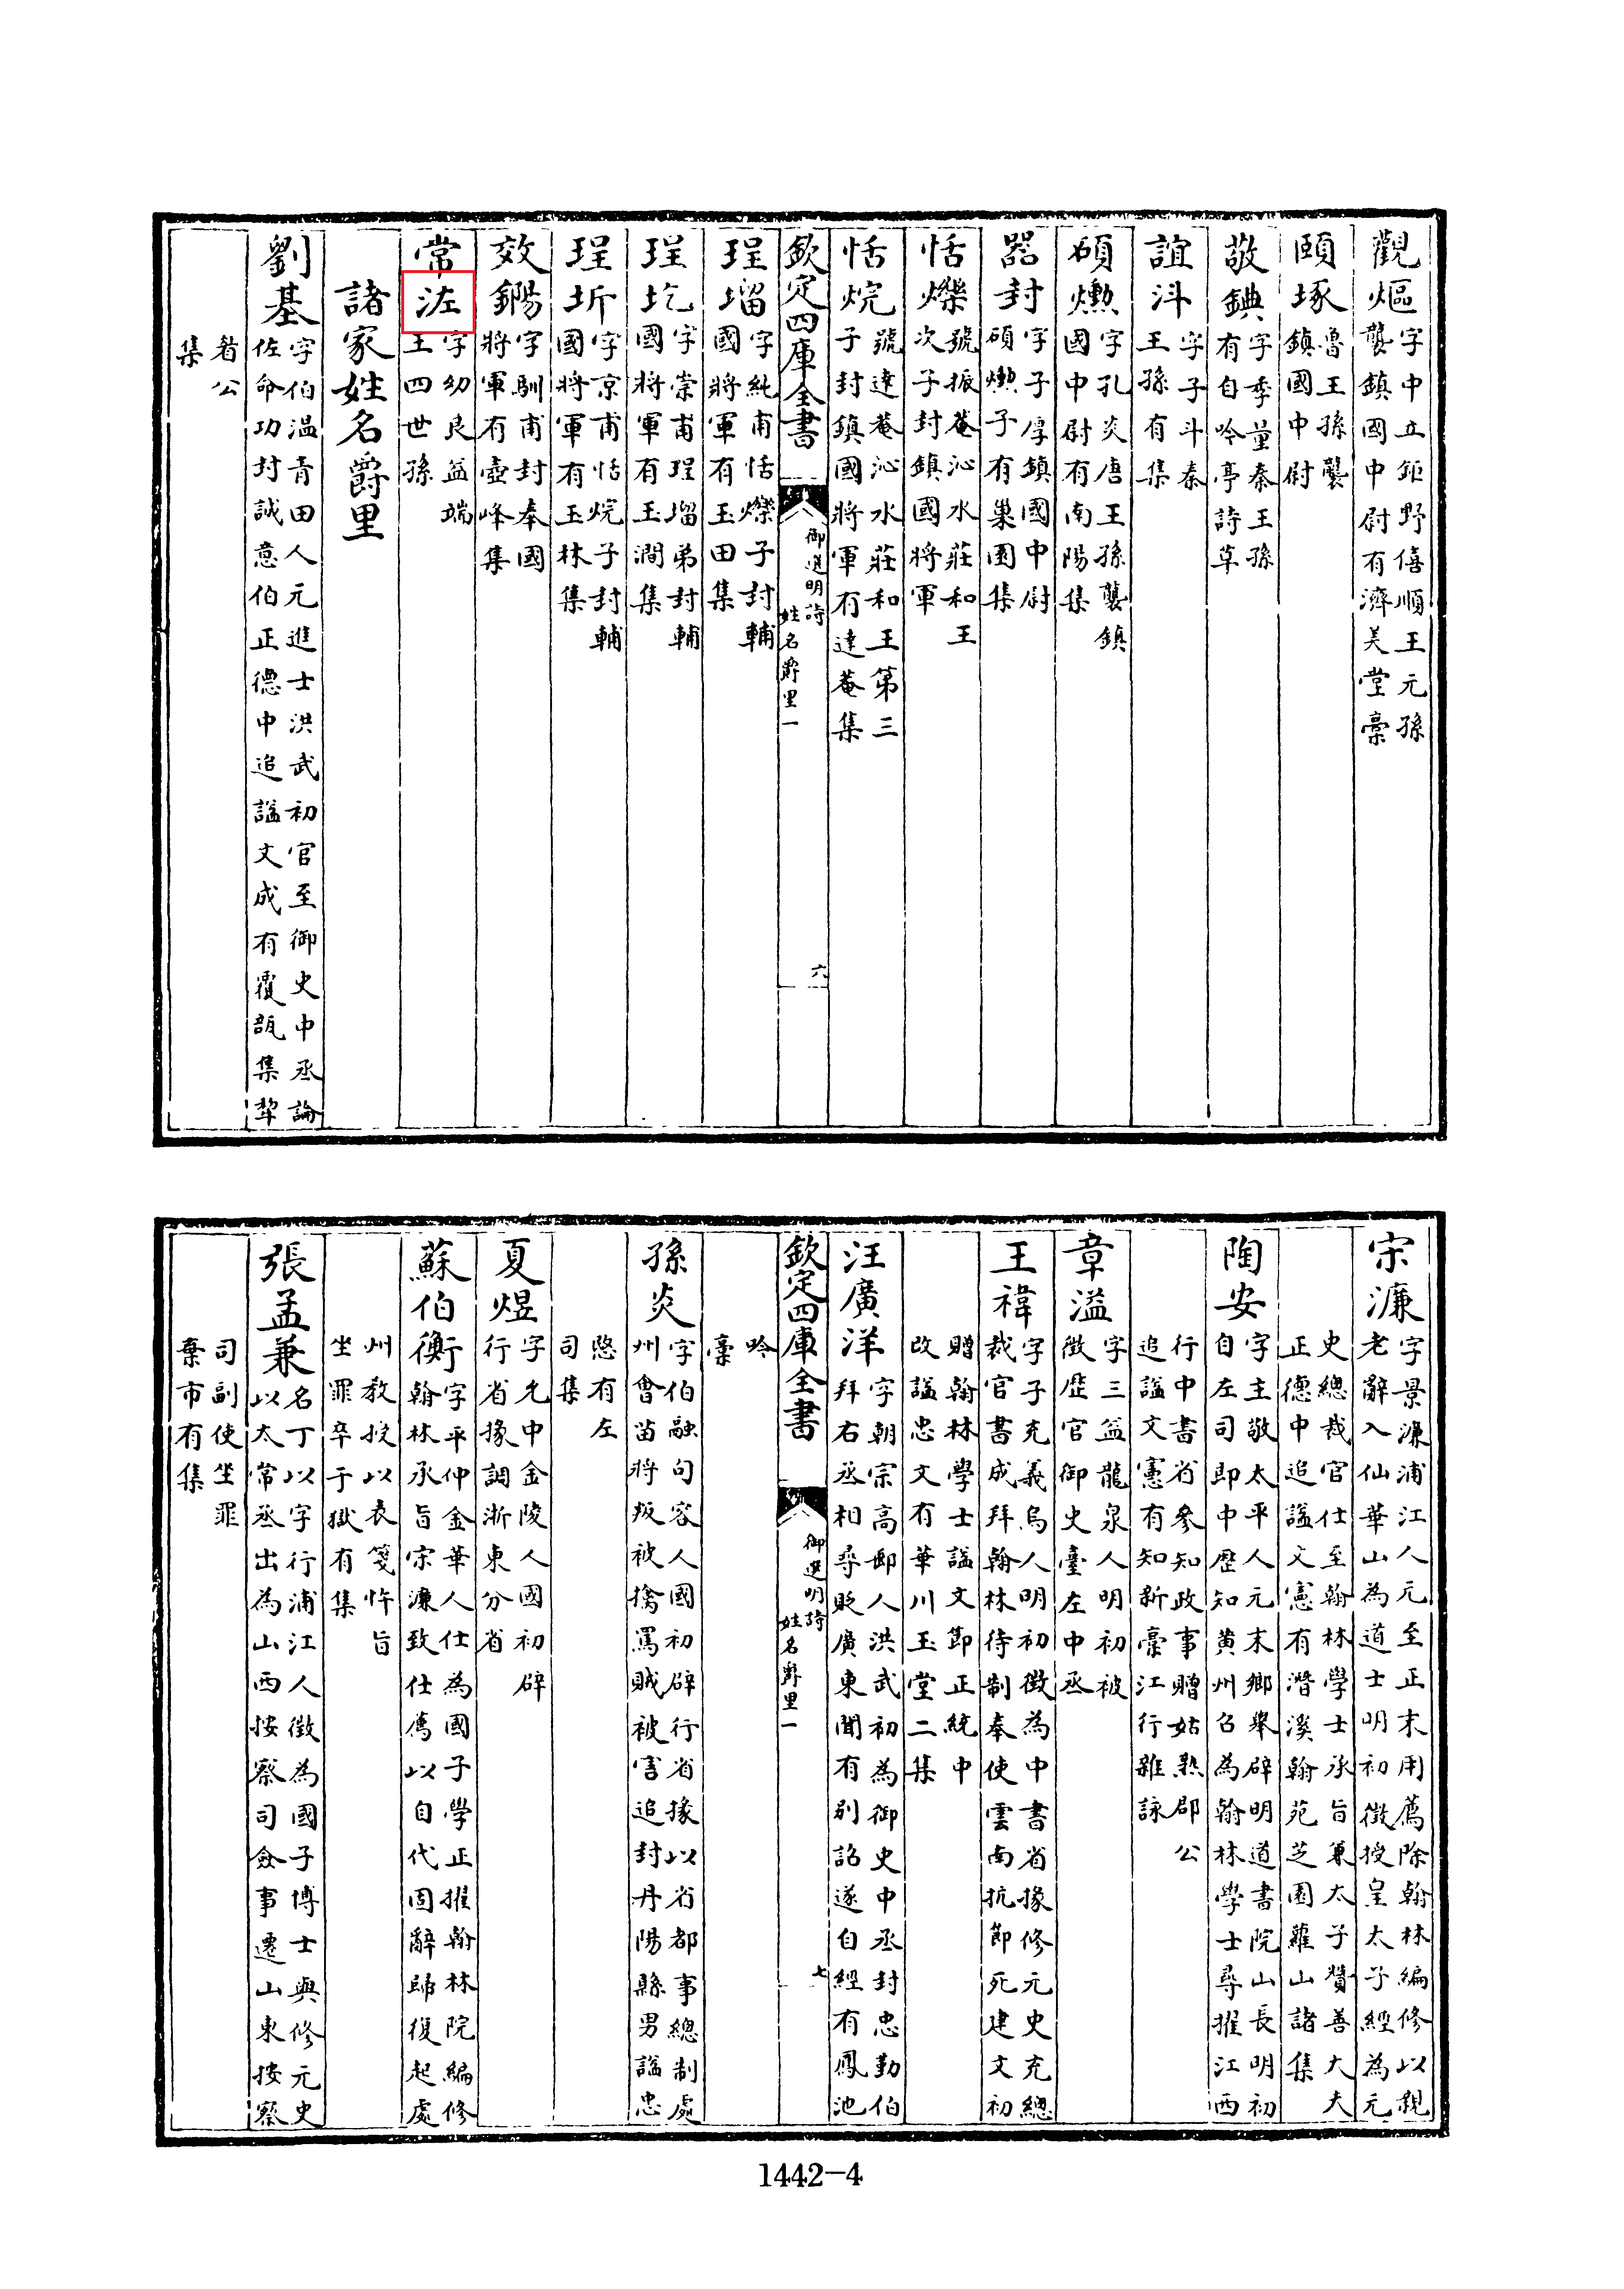 觀熰字中立鉅野僖順王元孫
襲鎮國中尉有濟美堂稾
頤㙇魯王孫襲
鎮國中尉
敬鉷字季量秦王孫
有自吟亭詩草
誼㳆字子斗秦
王孫有集
碩爋字孔炎唐王孫襲鎮
國中尉有南陽集
器封字子厚鎮國中尉
碩爋子有巢園集
恬爍號振菴沁水莊和王
次子封鎮國將軍
恬烷號達菴沁水莊和王第三
子封鎮國將軍有達菴集
欽定四庫全書
御選明詩
姓名爵里一
六
珵塯字純甫恬爍子封輔
國將軍有玉田集
珵圪字崇甫珵塯弟封輔
國將軍有玉澗集
珵圻字京甫恬烷子封輔
國將軍有玉林集
效鍚字馴甫封奉國
將軍有壺峰集
常字幼良益端
王四世孫
諸家姓名爵里
劉基字伯溫青田人元進士洪武初官至御史中丞論
佐命功封誠意伯正德中追諡文成有覆瓿集犂
眉公
集
宋濂字景濂浦江人元至正末用薦除翰林編修以親
老辭入仙華山為道士明初徵授皇太子經為元
史總裁官仕至翰林學士承旨兼太子贊善大夫
正德中追諡文憲有潛溪翰苑芝園蘿山諸集
陶安字主敬太平人元末鄉舉辟明道書院山長明初
自左司郎中歷知黃州召為翰林學士尋擢江西
行中書省參知政事贈姑熟郡公
追諡文憲有知新稾江行雜詠
章溢字三益龍泉人明初被
徵歷官御史臺左中丞
王禕字子充義烏人明初徵為中書省掾修元史充總
裁官書成拜翰林待制奉使雲南抗節死建文初
贈翰林學士諡文節正統中
改諡忠文有華川玉堂二集
汪廣洋字朝宗高郵人洪武初為御史中丞封忠勤伯
拜右丞相尋貶廣東聞有別詔遂自經有鳳池
欽定四庫全書
御選明詩
姓名爵里一
七
吟
稾
孫炎字伯融句容人國初辟行省掾以省都事總制處
州會苗將叛被擒罵賊被害追封丹陽縣男諡忠
愍有左
司集
夏煜字允中金陵人國初辟
行省掾調浙東分省
蘇伯衡字平仲金華人仕為國子學正擢翰林院編修
翰林承旨宋濂致仕薦以自代固辭歸復起處
州教授以表箋忤旨
坐罪卒于獄有集
張孟兼名丁以字行浦江人徵為國子博士與修元史
以太常丞出為山西按察司僉事遷山東按察
司副使坐罪
棄市有集
1442-4